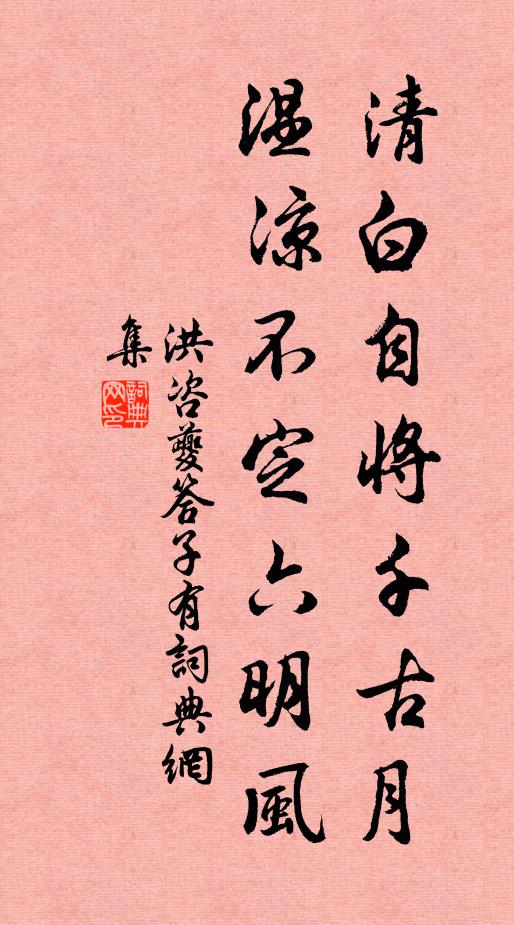 清白自將千古月
温涼不定六明風
洪咨夔答子有詞典網
集
詞典
网印